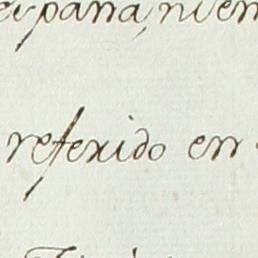 españa, ni en
referido en